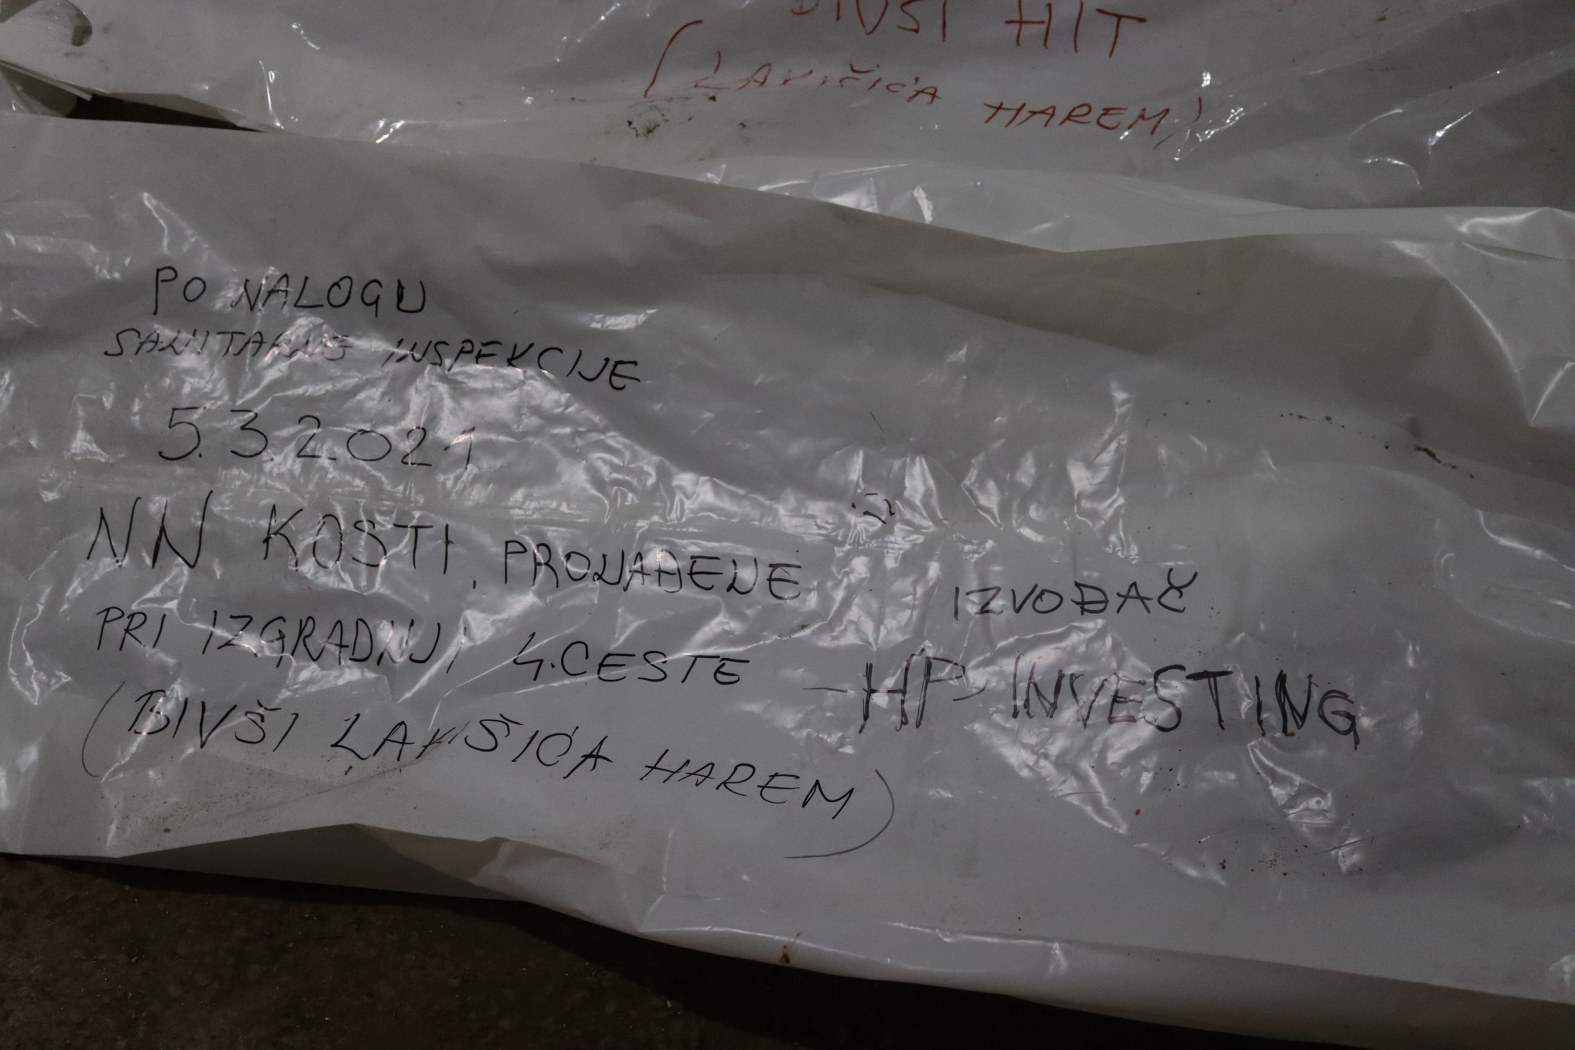 BIVŠI HIT
(LAKIŠIĆA HAREM)
PO NALOGU
SANITARNE INSPEKCIJE
5.3.2021
NN KOSTI, PRONAĐENE
PRI IZGRADNJI 4.CESTE
(BIVŠI LAKIŠIĆA HAREM)
IZVOĐAČ
-HP INVESTING